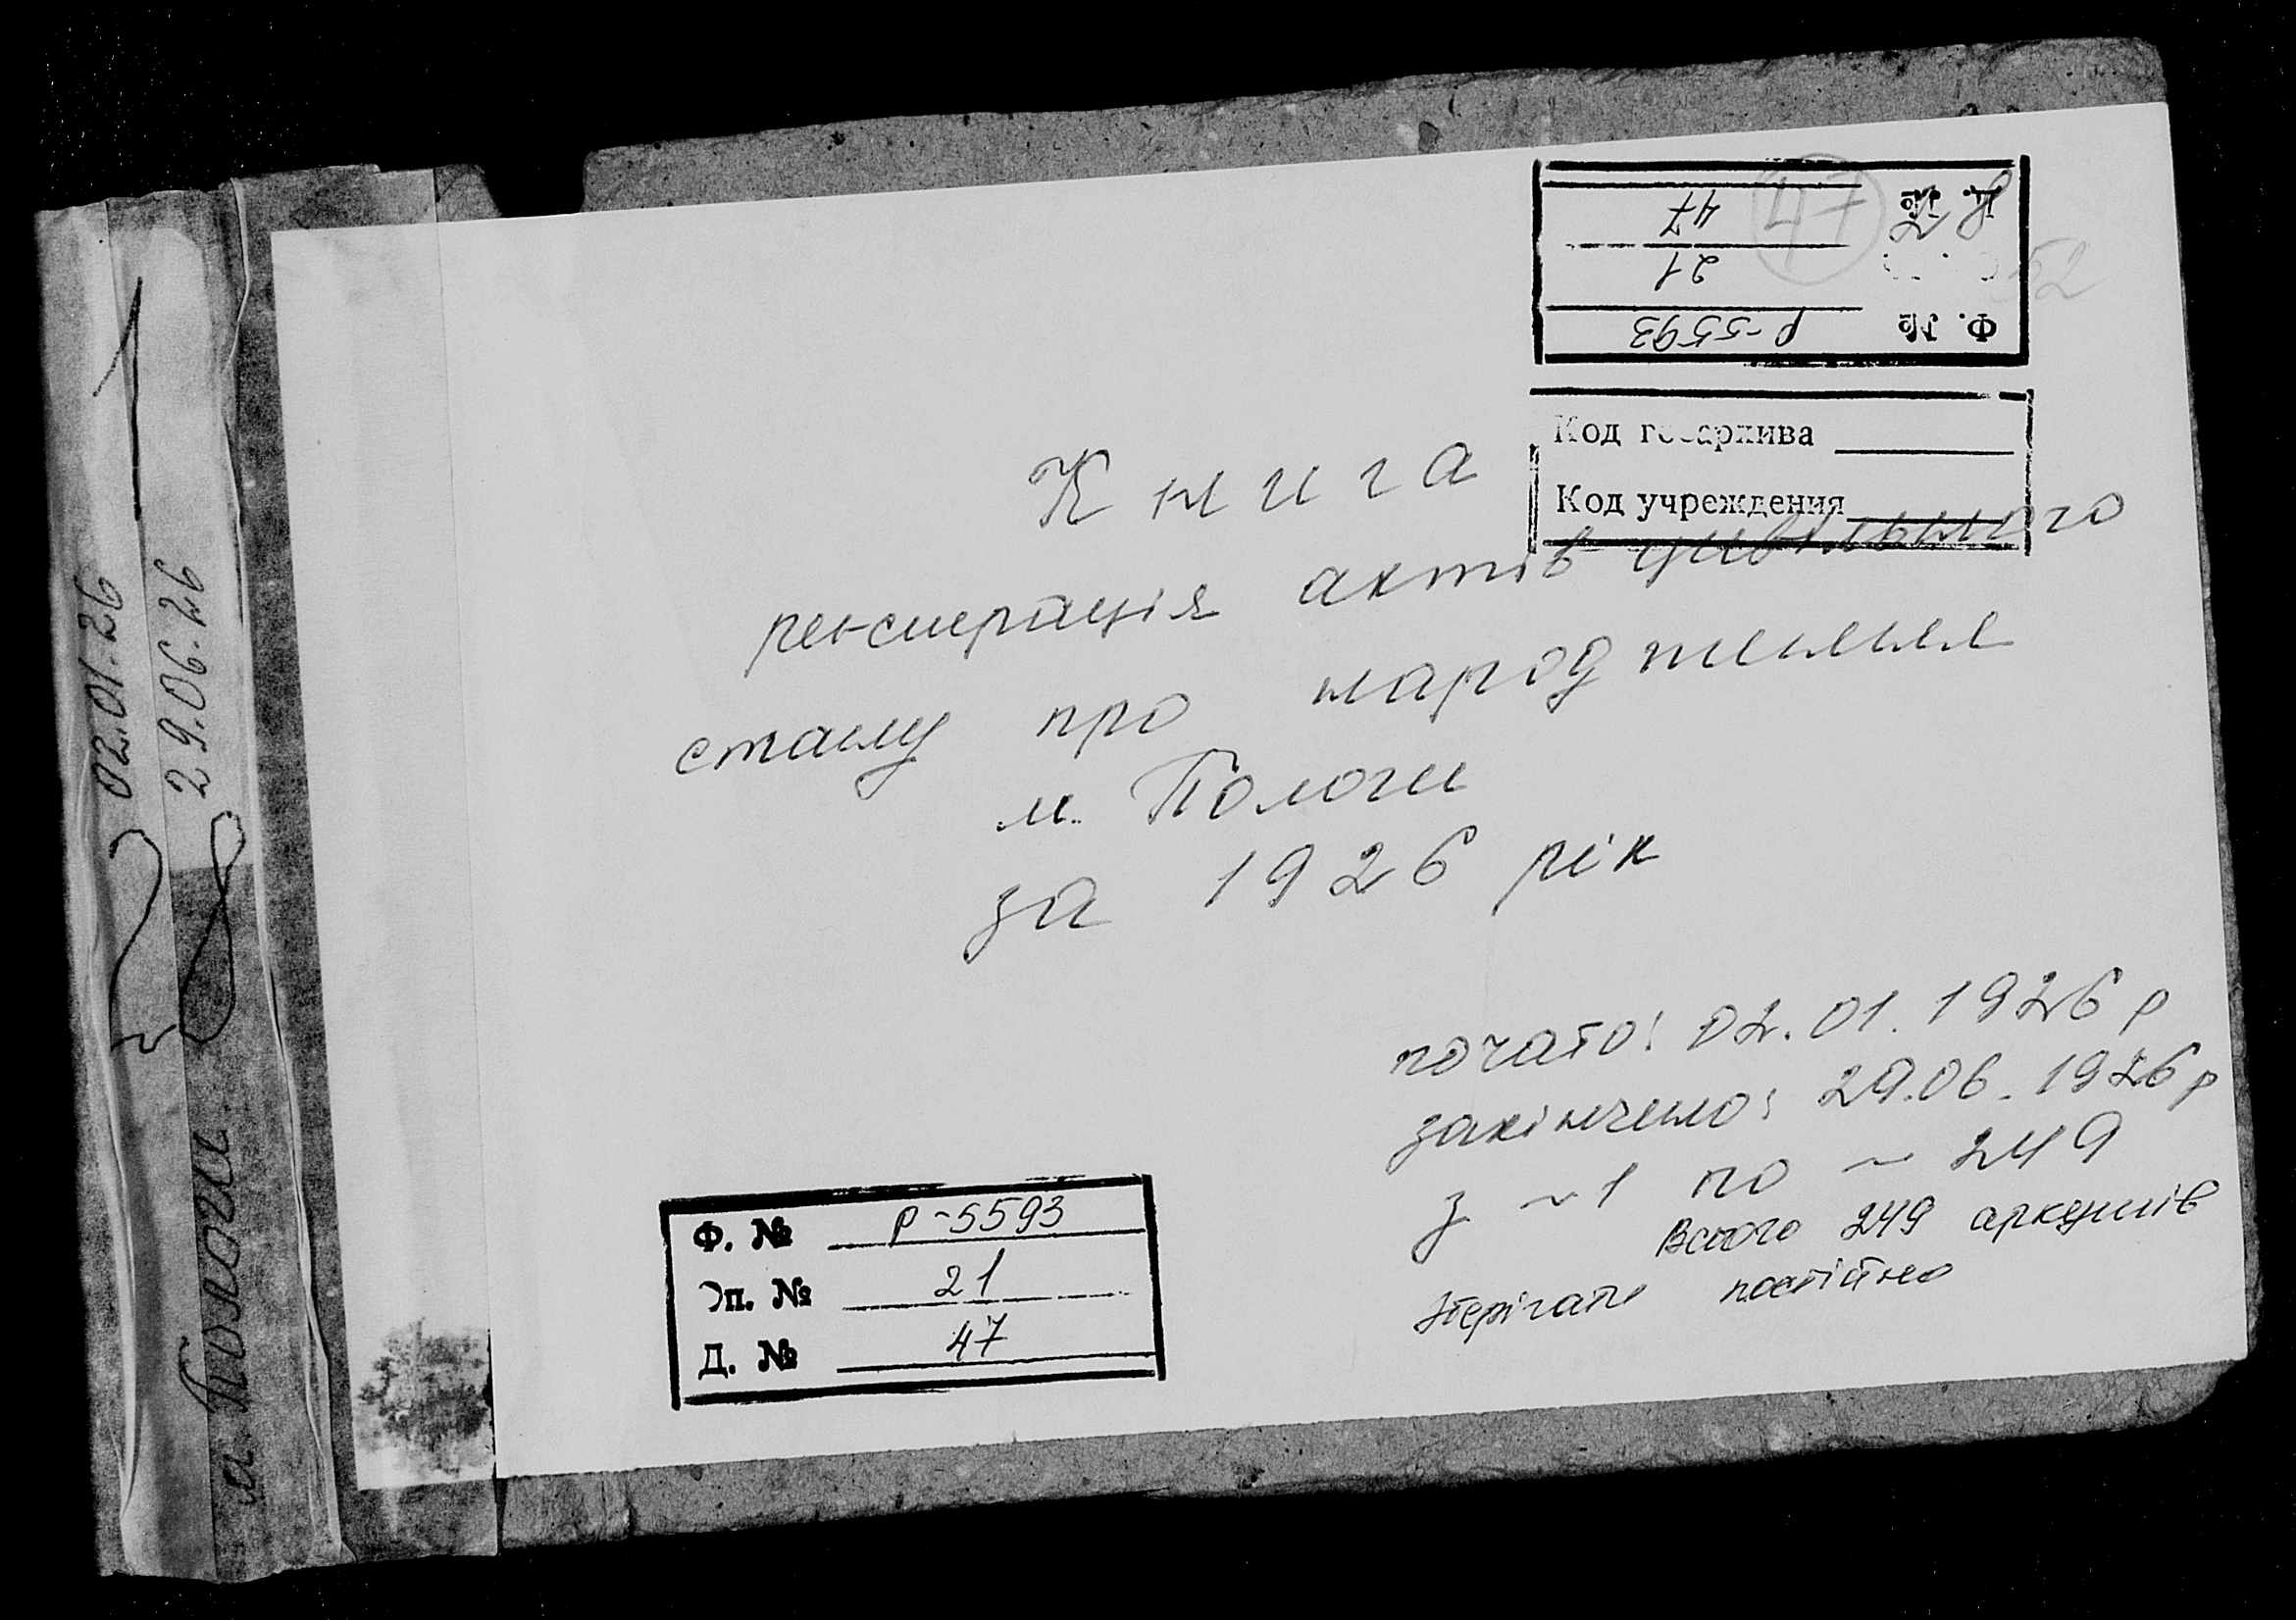 02.01.26
29.06.26
м Пологи
Ф. № Р-5593
21
47
47
52
Код госархива
Код учреждения
Книга
реєстрація актів цивільного
стану про народження
м. Пологи
за 1926 рік
почато: 02.01.1926 р
закінчено: 29.06.1926 р
з ~ 1 по ~ 249
Всього 249 аркушів
Зберігати постійно
Ф. № Р-5593
Оп. № 21
Д. № 47